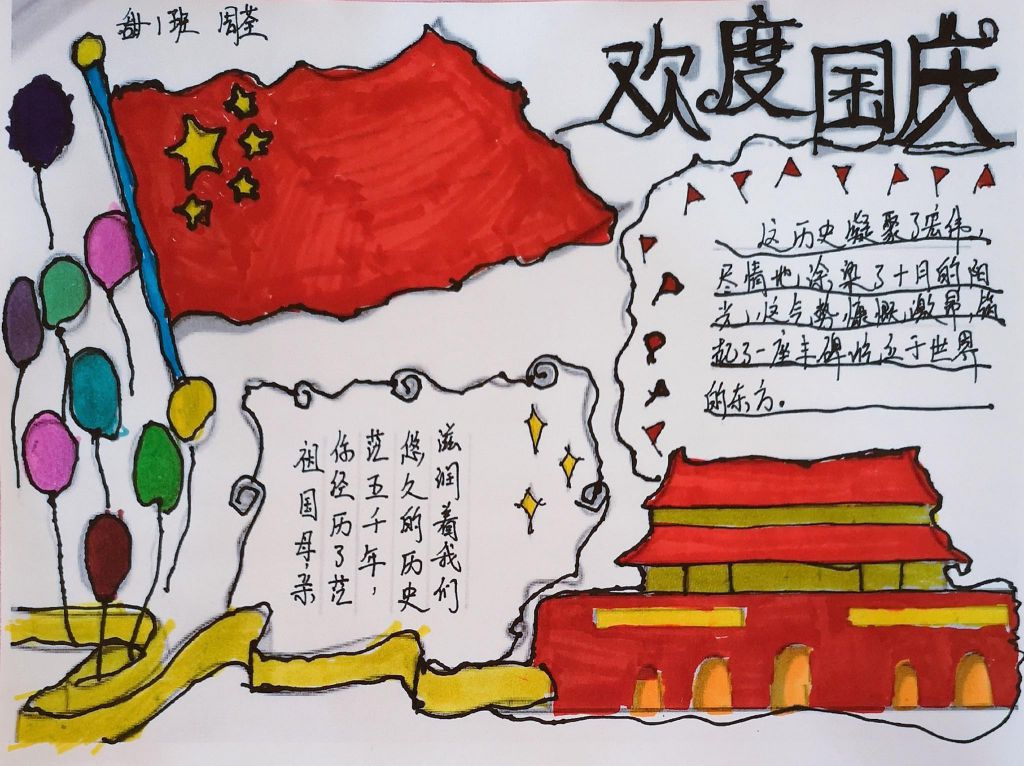 欢度国庆
这历史凝聚了宏伟,
尽情地涂染了十月的阳
光,这气势慷慨激昂,筑
起了一座丰碑屹立于世界
的东方。
祖国母亲
你经历了茫
茫五千年,
悠久的历史
滋润着我们